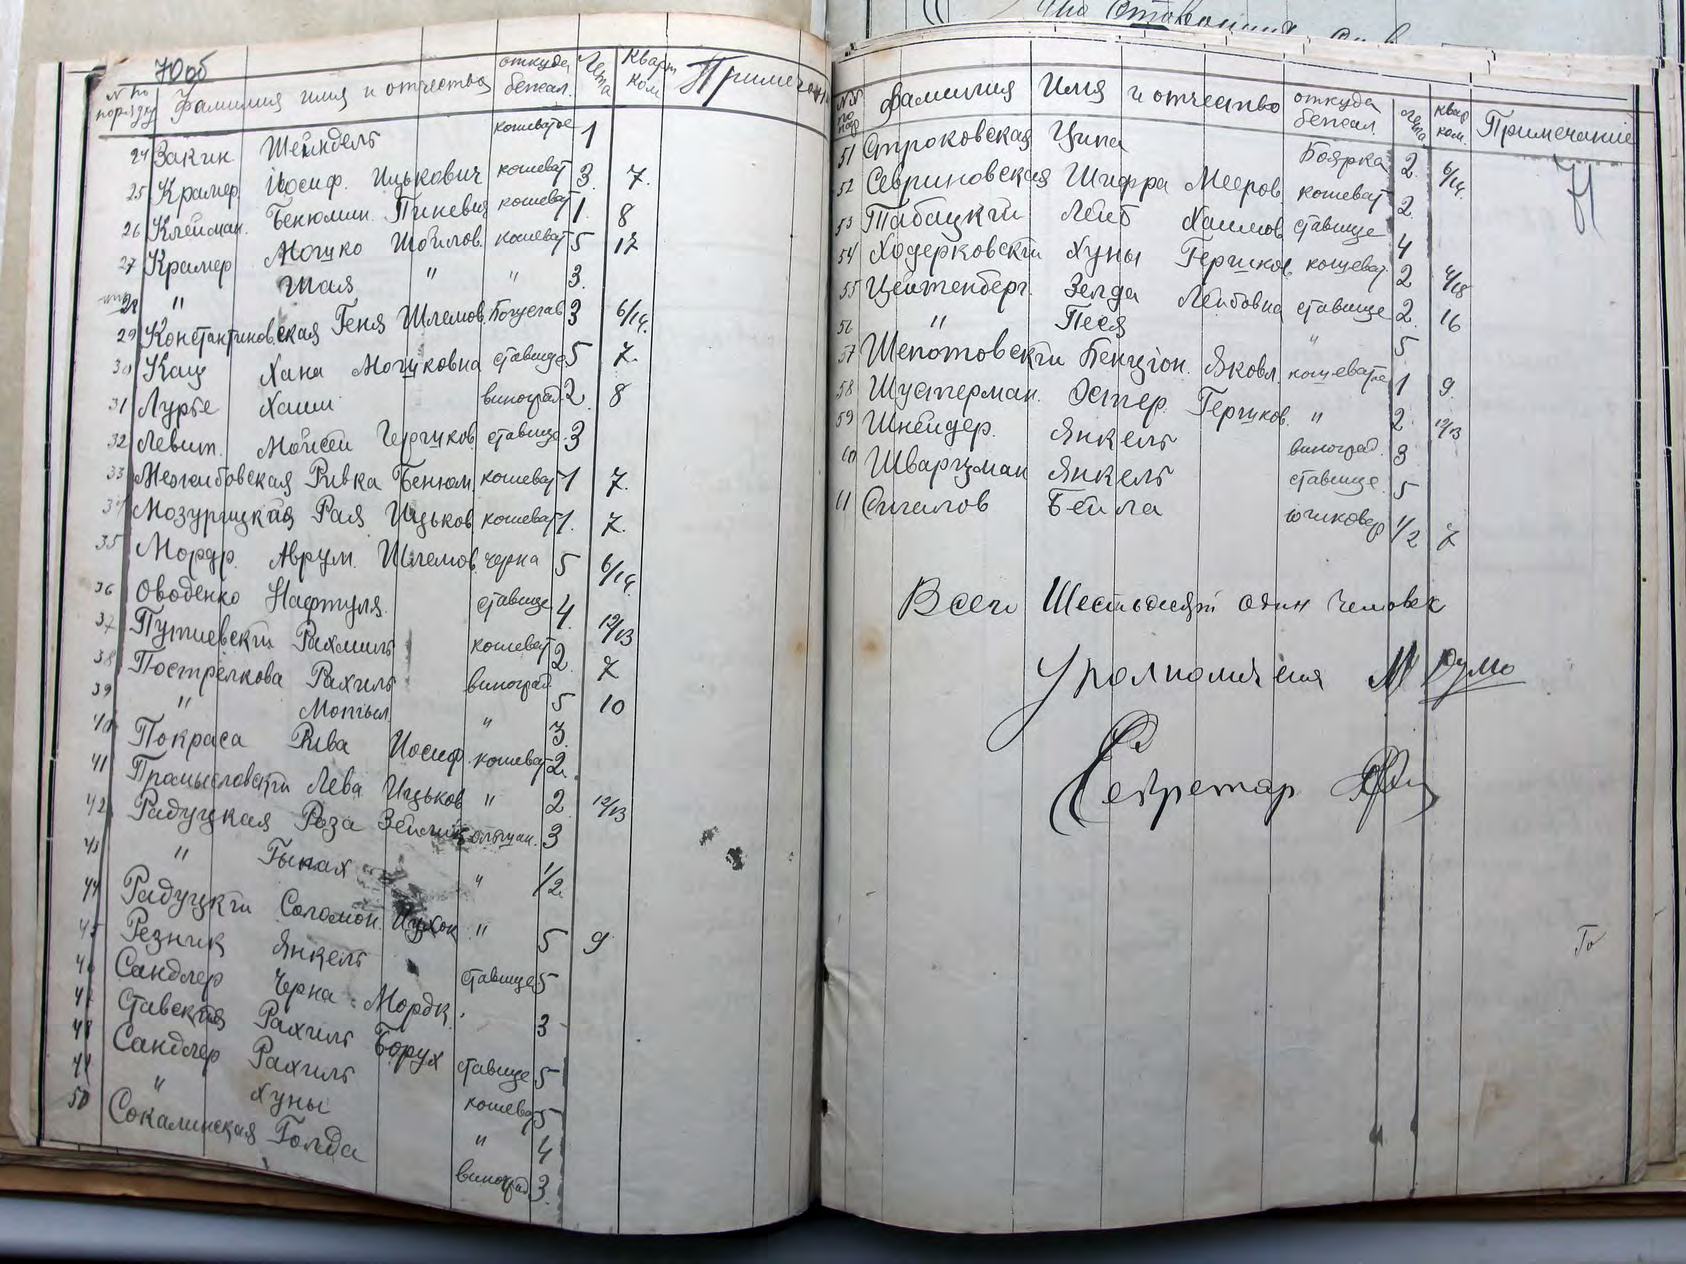 70об
№ по порядку Фамилия имя и отчества откуда бежал. Лета кварт ком Примечан
24 Закин Шейндель кошеватое 1
25 Крамер. Йосиф. Ицькович кошеват 3. 7.
26 Клейман. Бенюмин. Пиневич кошеват 1. 8
27 Крамер Мошко Шойлов. кошеват 5 12
28 " Шая " " 3.
29 Константиновская Геня Шлемов. Богуслав 3 6/14.
30 Кац Хана Мошковна ставище 5 7.
31 Лурье Хаим виноград 2. 8
32 Левит. Мойсей Гершков. ставище. 3
33 Межибовская Ривка Бенюм. кошеват 1 7.
34 Рая Ицьков кошеват 1. 7.
35 Мордр. Аврум. Шлемов. черна 5 6/14.
36 Оводенко Нафтуля. ставище 4. 12/13
37 Путиевскти Рахмиль кошеват 2. 7
38 Пострелкова Рахиль виноград 5 10
39 " Мотьыл " 3.
40 Покраса Рива Иосиф. кошеват 2.
41 Промысловскти Лева Ицьков " 2 12/13
42 Радуцкая Роза ольшан. 3
43 " " 1/2.
44 Радуцкти Соломон. Ицхок " 5 9
45 Резник Янкель ставище 5
46 Сандлер Черна Мордк. 3
47 Ставская Рахиль Борух ставище 5
48 Сандлер Рахиль кошева 5
49 " Хуны " 4
50 Сокалинская Голда виноград 3.
71
№№ по пор Фамилия Имя и отчество откуда бежал Лета квар ком. Примечание
51 Строковская Ципа Боярка 2. 6/14.
52 Севриновская Шифра Мееров кошеват 2.
53 Табацкти Лейб Хаимов ставище 4
54 Ходерковскти Хуны Гершков. кошеват. 2 4/18
55 Цейтенберг. Зелда Лейбовна ставище 2. 16
56 " Песя " 5.
57 Шепотовскти Бенцион. Яковл. кошеватое 1 9.
58 Шустерман. Эстер. Гершков. " 2. 12/13
59 Шнейдер. Янкель виноград. 3
60 Шварцман Янкель ставище. 5
61 Сигалов Бейла 1/2 7
Всего Шестьдесят один человек
М
Секретар
Го